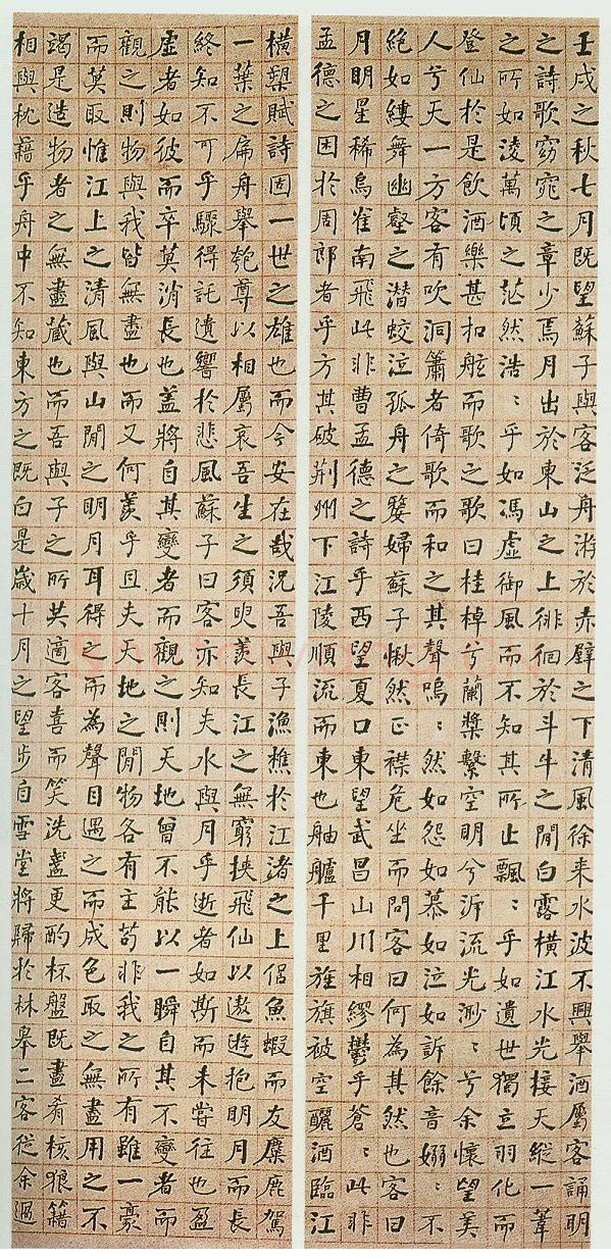 壬戌之秋七月既望蘇子與客泛舟游於赤壁之下清風徐来水波不興舉酒屬客誦明
之詩歌窈窕之章少焉月出於東山之上徘徊於斗牛之閒白露橫江水光接天縱一葦
之所如淩萬頃之茫然浩〻乎如馮虛御風而不知其所止飄〻乎如遺世獨立羽化而
登仙於是飲酒樂甚扣舷而歌之歌曰桂棹兮蘭槳繫空明兮泝流光渺〻兮余懷望美
人兮天一方客有吹洞簫者倚歌而和之其聲嗚〻然如怨如慕如泣如訴餘音嫋〻不
絕如縷舞幽壑之潛蛟泣孤舟之嫠婦蘇子愀然正襟危坐而問客曰何為其然也客曰
月明星稀烏雀南飛此非曹孟德之詩乎西望夏口東望武昌山川相繆鬱乎蒼〻此非
孟德之困於周郎者乎方其破荆州下江陵順流而東也舳艫千里旌旗被空釃酒臨江
橫槊賦詩固一世之雄也而今安在哉況吾與子漁樵於江渚之上侶魚蝦而友麋鹿駕
一葉之扁舟舉匏尊以相屬哀吾生之須臾羨長江之無窮挾飛仙以遨遊抱明月而長
終知不可乎驟得託遺響於悲風蘇子曰客亦知夫水與月乎逝者如斯而未嘗往也盈
虛者如彼而卒莫消長也蓋將自其變者而觀之則天地曾不能以一瞬自其不變者而
觀之則物與我皆無盡也而又何羨乎且夫天地之閒物各有主苟非我之所有雖一豪
而莫取惟江上之清風與山閒之明月耳得之而為聲目遇之而成色取之無盡用之不
竭是造物者之無盡藏也而吾與子之所共適客喜而笑洗盞更酌杯盤既盡肴核狼籍
相與枕藉乎舟中不知東方之既白是歲十月之望步自雪堂將歸於林皋二客從余過